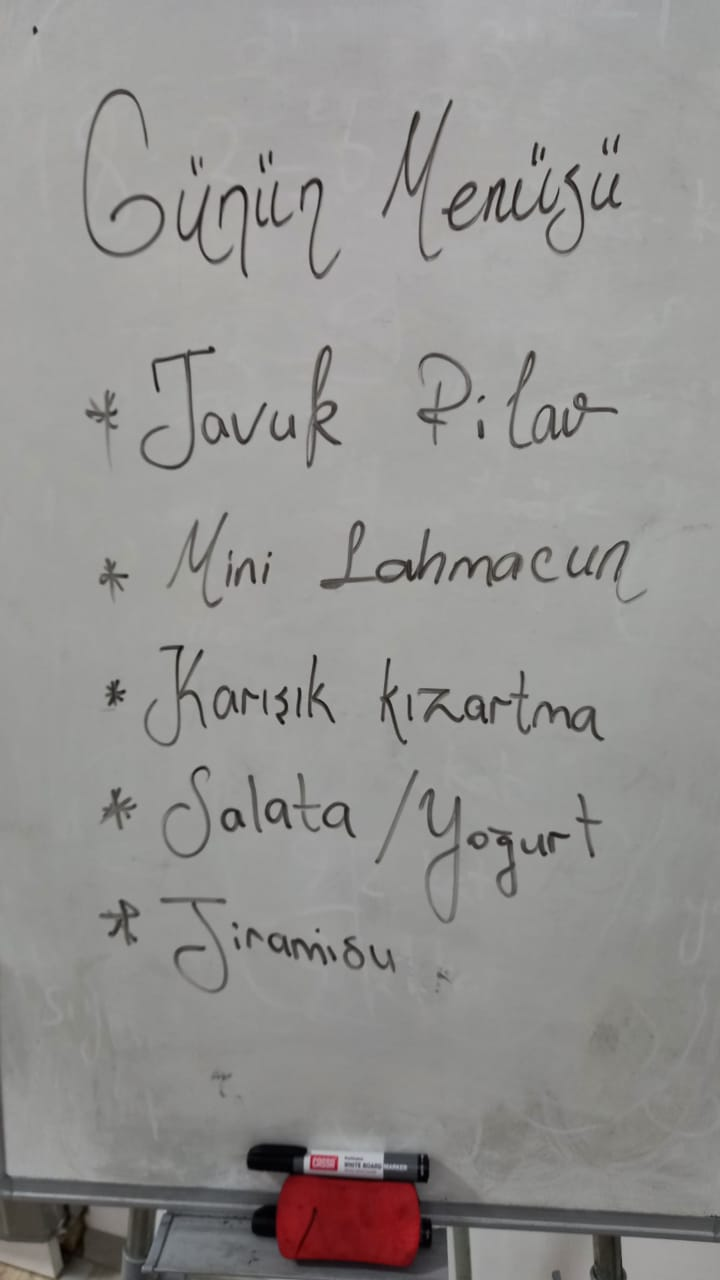 Günün Menüsü
* Tavuk Pilav
* Mini Lahmacun
* Karışık kızartma
* Salata / Yoğurt
* Tiramisu
CASSA
WHITE BOARD MARKER